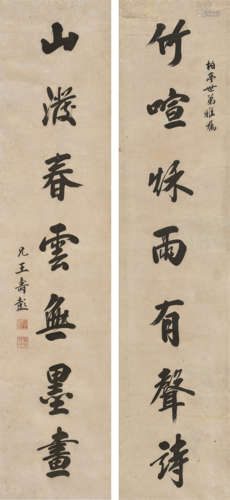 柏亭世弟雅
竹喧秋雨有聲詩
山潑春雲無墨畫
兄王壽彭